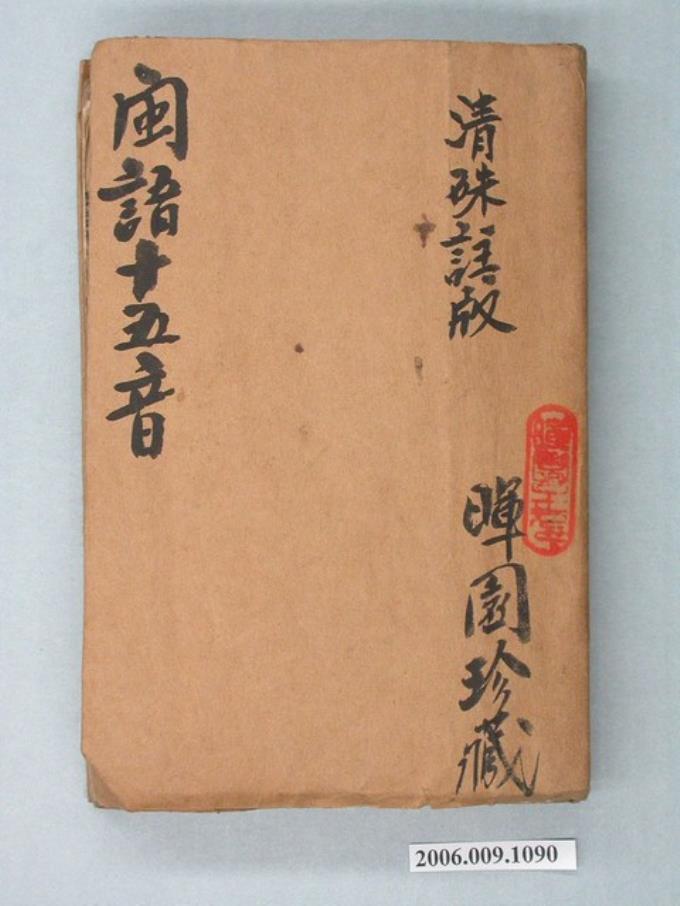 清硃註版
暉園珍藏
閩語十五音
2006.009.1090